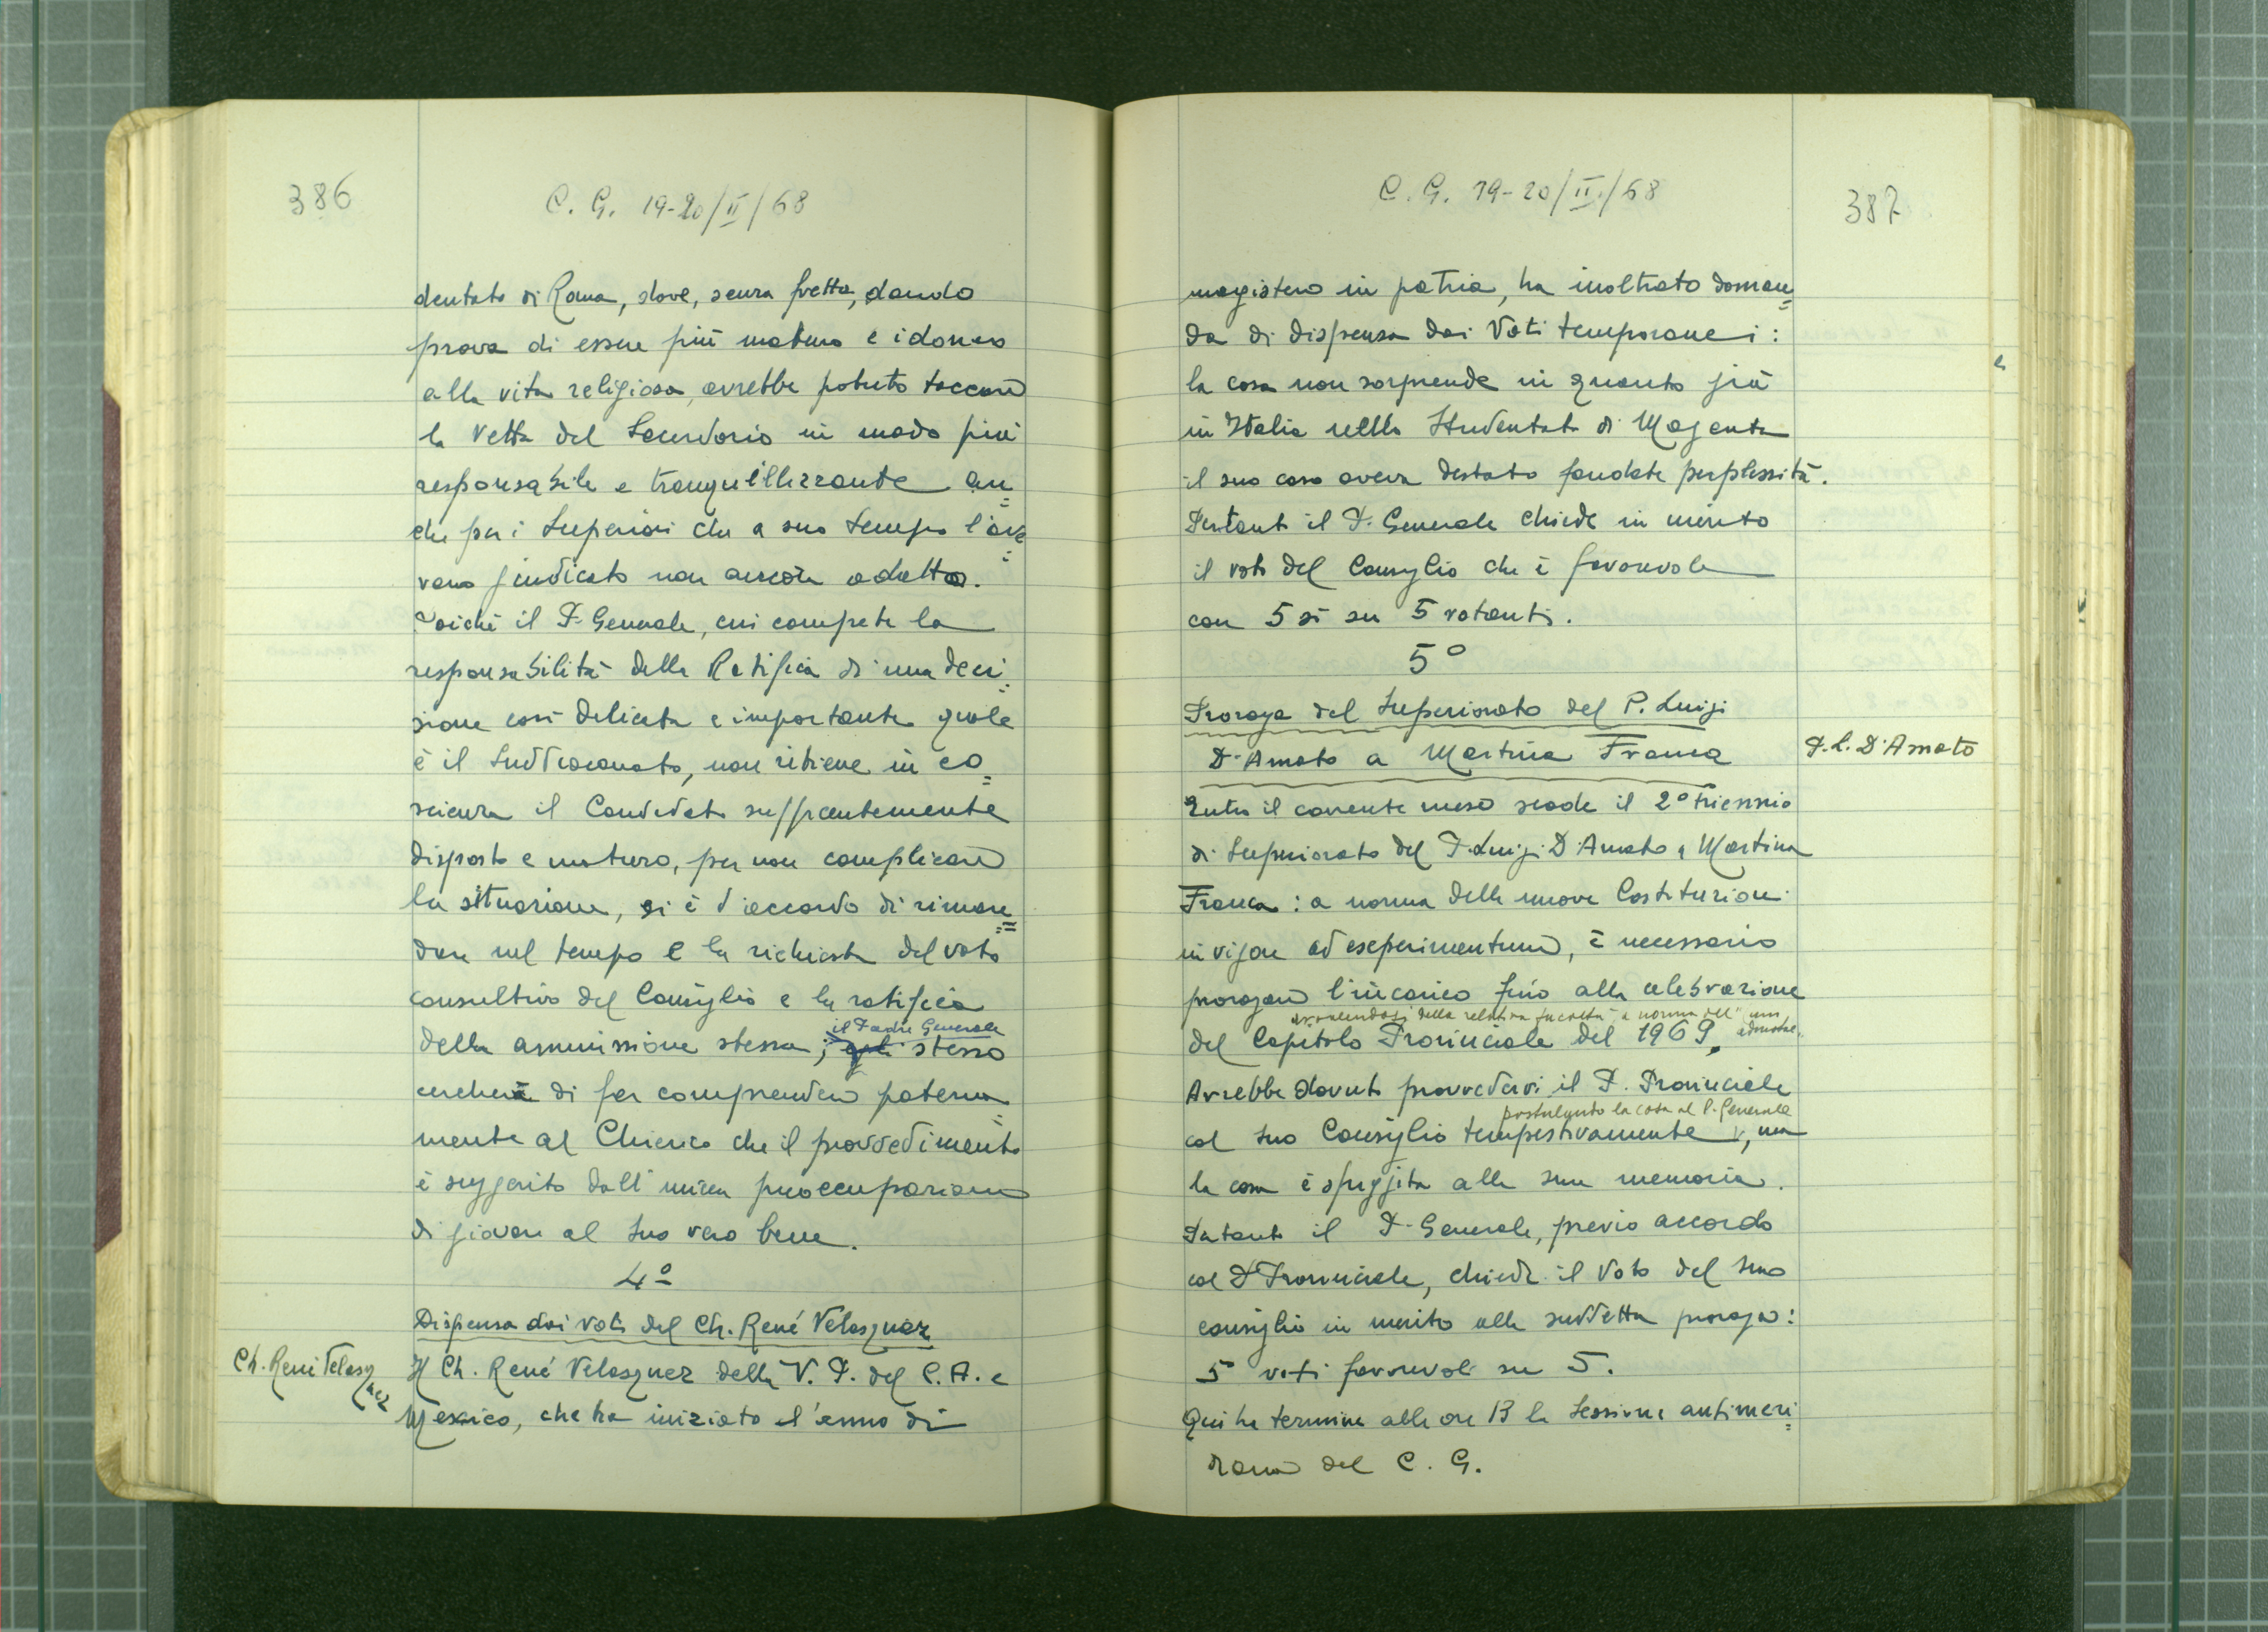 386
C. G. 19-20/II/68
dentato di Roma, dove, senza fretta, dando
prova di essere più maturo e idoneo
alla vita religiosa, avrebbe potuto toccare
la vetta del Sacerdozio in modo più
responsabile e tranquillizzante an=
che per i Superiori che a suo tempo l'ave=
vano giudicato non ancora adatto.
Poiché il P. Generale, cui compete la
responsabilità della Ratifica di una deci=
sione così delicata e importante quale
è il Suddiaconato, non ritiene in co=
scienza il Candidato sufficientemente
disposto e maturo, per non complicare
la situazione, si è d'accordo di riman=
dare nel tempo e la richiesta del voto
consultivo del Consiglio e la ratifica
il Padre Generale
della ammissione stessa; egli stesso
cercherà di far comprendere paterna=
mente al Chierico che il provvedimento
è suggerito dall'unica preoccupazione
di giovare al suo vero bene.
4º
Dispensa dai voti del Ch. René Velasquez
Ch. René Velasq
uez
Il Ch. René Velasquez della V. P. del C. A. e
Mexico, che ha iniziato l'anno di
C. G. 19-20/II/68
387
magistero in patria, ha inoltrato doman=
da di dispensa dai Voti temporanei:
la cosa non sorprende in quanto già
in Italia nello Studentato di Magenta
il suo caso aveva destato fondate perplessità.
Pertanto il P. Generale chiede in merito
il voto del Consiglio che è favorevole
con 5 sì su 5 votanti.
5º
Proroga del Superiorato del P. Luigi
D'Amato a Martina Franca
P. L. D'Amato
Entro il corrente mese scade il 2º triennio
di Superiorato del P. Luigi D'Amato a Martina
Franca: a norma delle nuove Costituzioni
in vigore ad esperimentum, è necessario
prorogare l'incarico fino alla celebrazione
avvalendosi della relativa facoltà, a norma dell'
del Capitolo Provinciale del 1969.
Avrebbe dovuto provvedervi il P. Provinciale
postulando la cosa al P. Generale
col suo Consiglio tempestivamente, ma
la cosa è sfuggita alla sua memoria.
Pertanto il P. Generale, previo accordo
col P. Provinciale, chiede il Voto del suo
consiglio in merito alla suddetta proroga:
5 voti favorevoli su 5.
Qui ha termine alle ore 13 la Sessione antimeri=
diana del C. G.